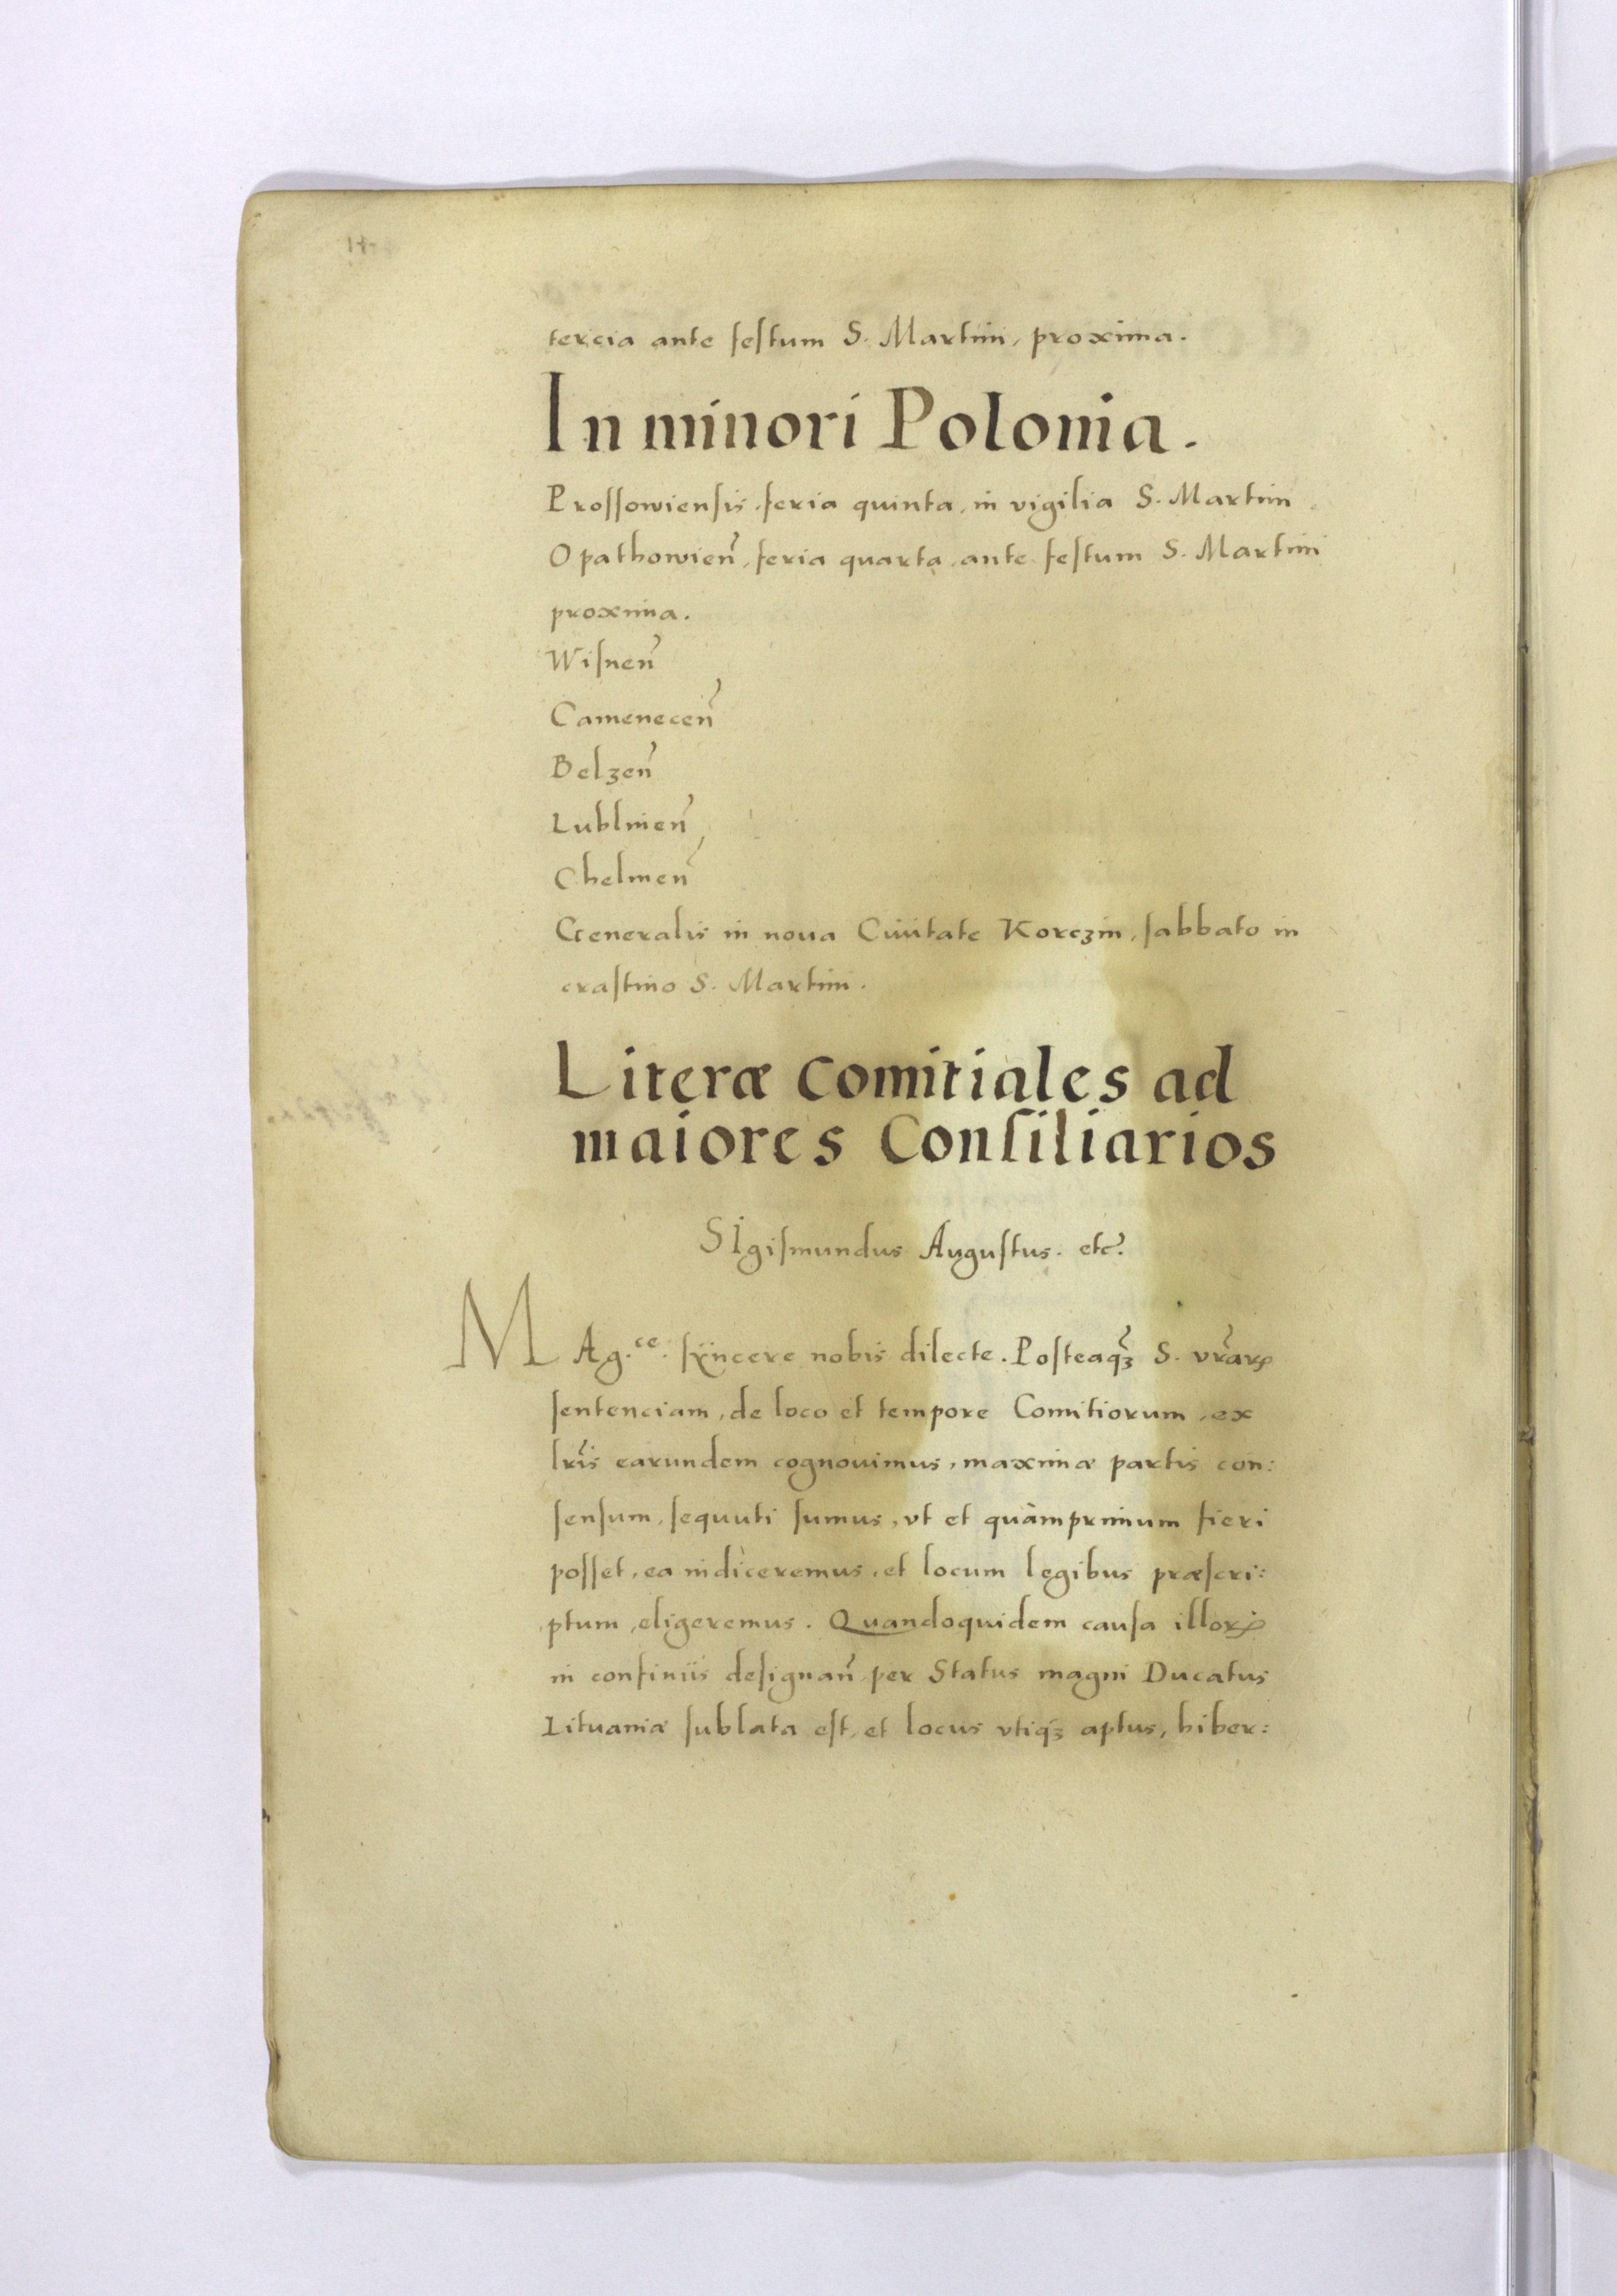 tercia ante feſtum S. Martini, proxima.
In minori Polonia.
Proſſowienſis, feria quinta, in vigilia S. Martini
Opathowien̉, feria quarta, ante feſtum S. Martini
proxima.
Wiſnen̉
Camenecen̉
Belzen̉
Lublinen̉
Chelmen̉
Generalis in noua Ciuitate Korczin, ſabbato in
craſtino S. Martini.
Literæ comitiales ad
maiores Conſiliarios
SIgiſmundus Auguſtus. etc̉.
MAg.ce. ſÿncere nobis dilecte. Poſteaqꝫ̉ S. vr̉arꝝ
ſentenciam, de loco et tempore Comitiorum, ex
lr̉is earundem cognouimus, maximæ partis con:
ſenſum, ſequuti ſumus, vt et quàmprimum fieri
poſſet, ea indìceremus, et locum legibus præſcri:
ptum, eligeremus. Quandoquidem cauſa illorꝝ
in confiniis deſignan̉ per Status magni Ducatus
Lituaniæ ſublata eſt, et locus vtiqꝫ aptus, hiber: